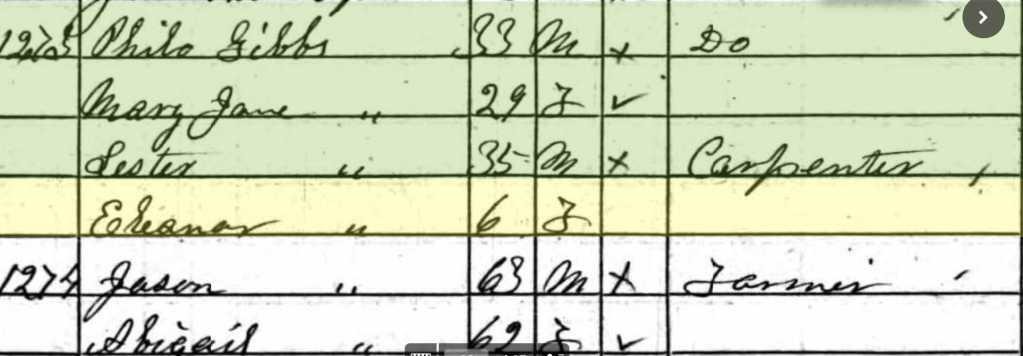 1273 Philo Gibbs 33 M x Do
Mary Jane " 29 F ✓
Lester " 35 M x Carpenter
Eleanor " 6 F
1274 Jason " 63 M x Farmer
Abigail " 62 F ✓